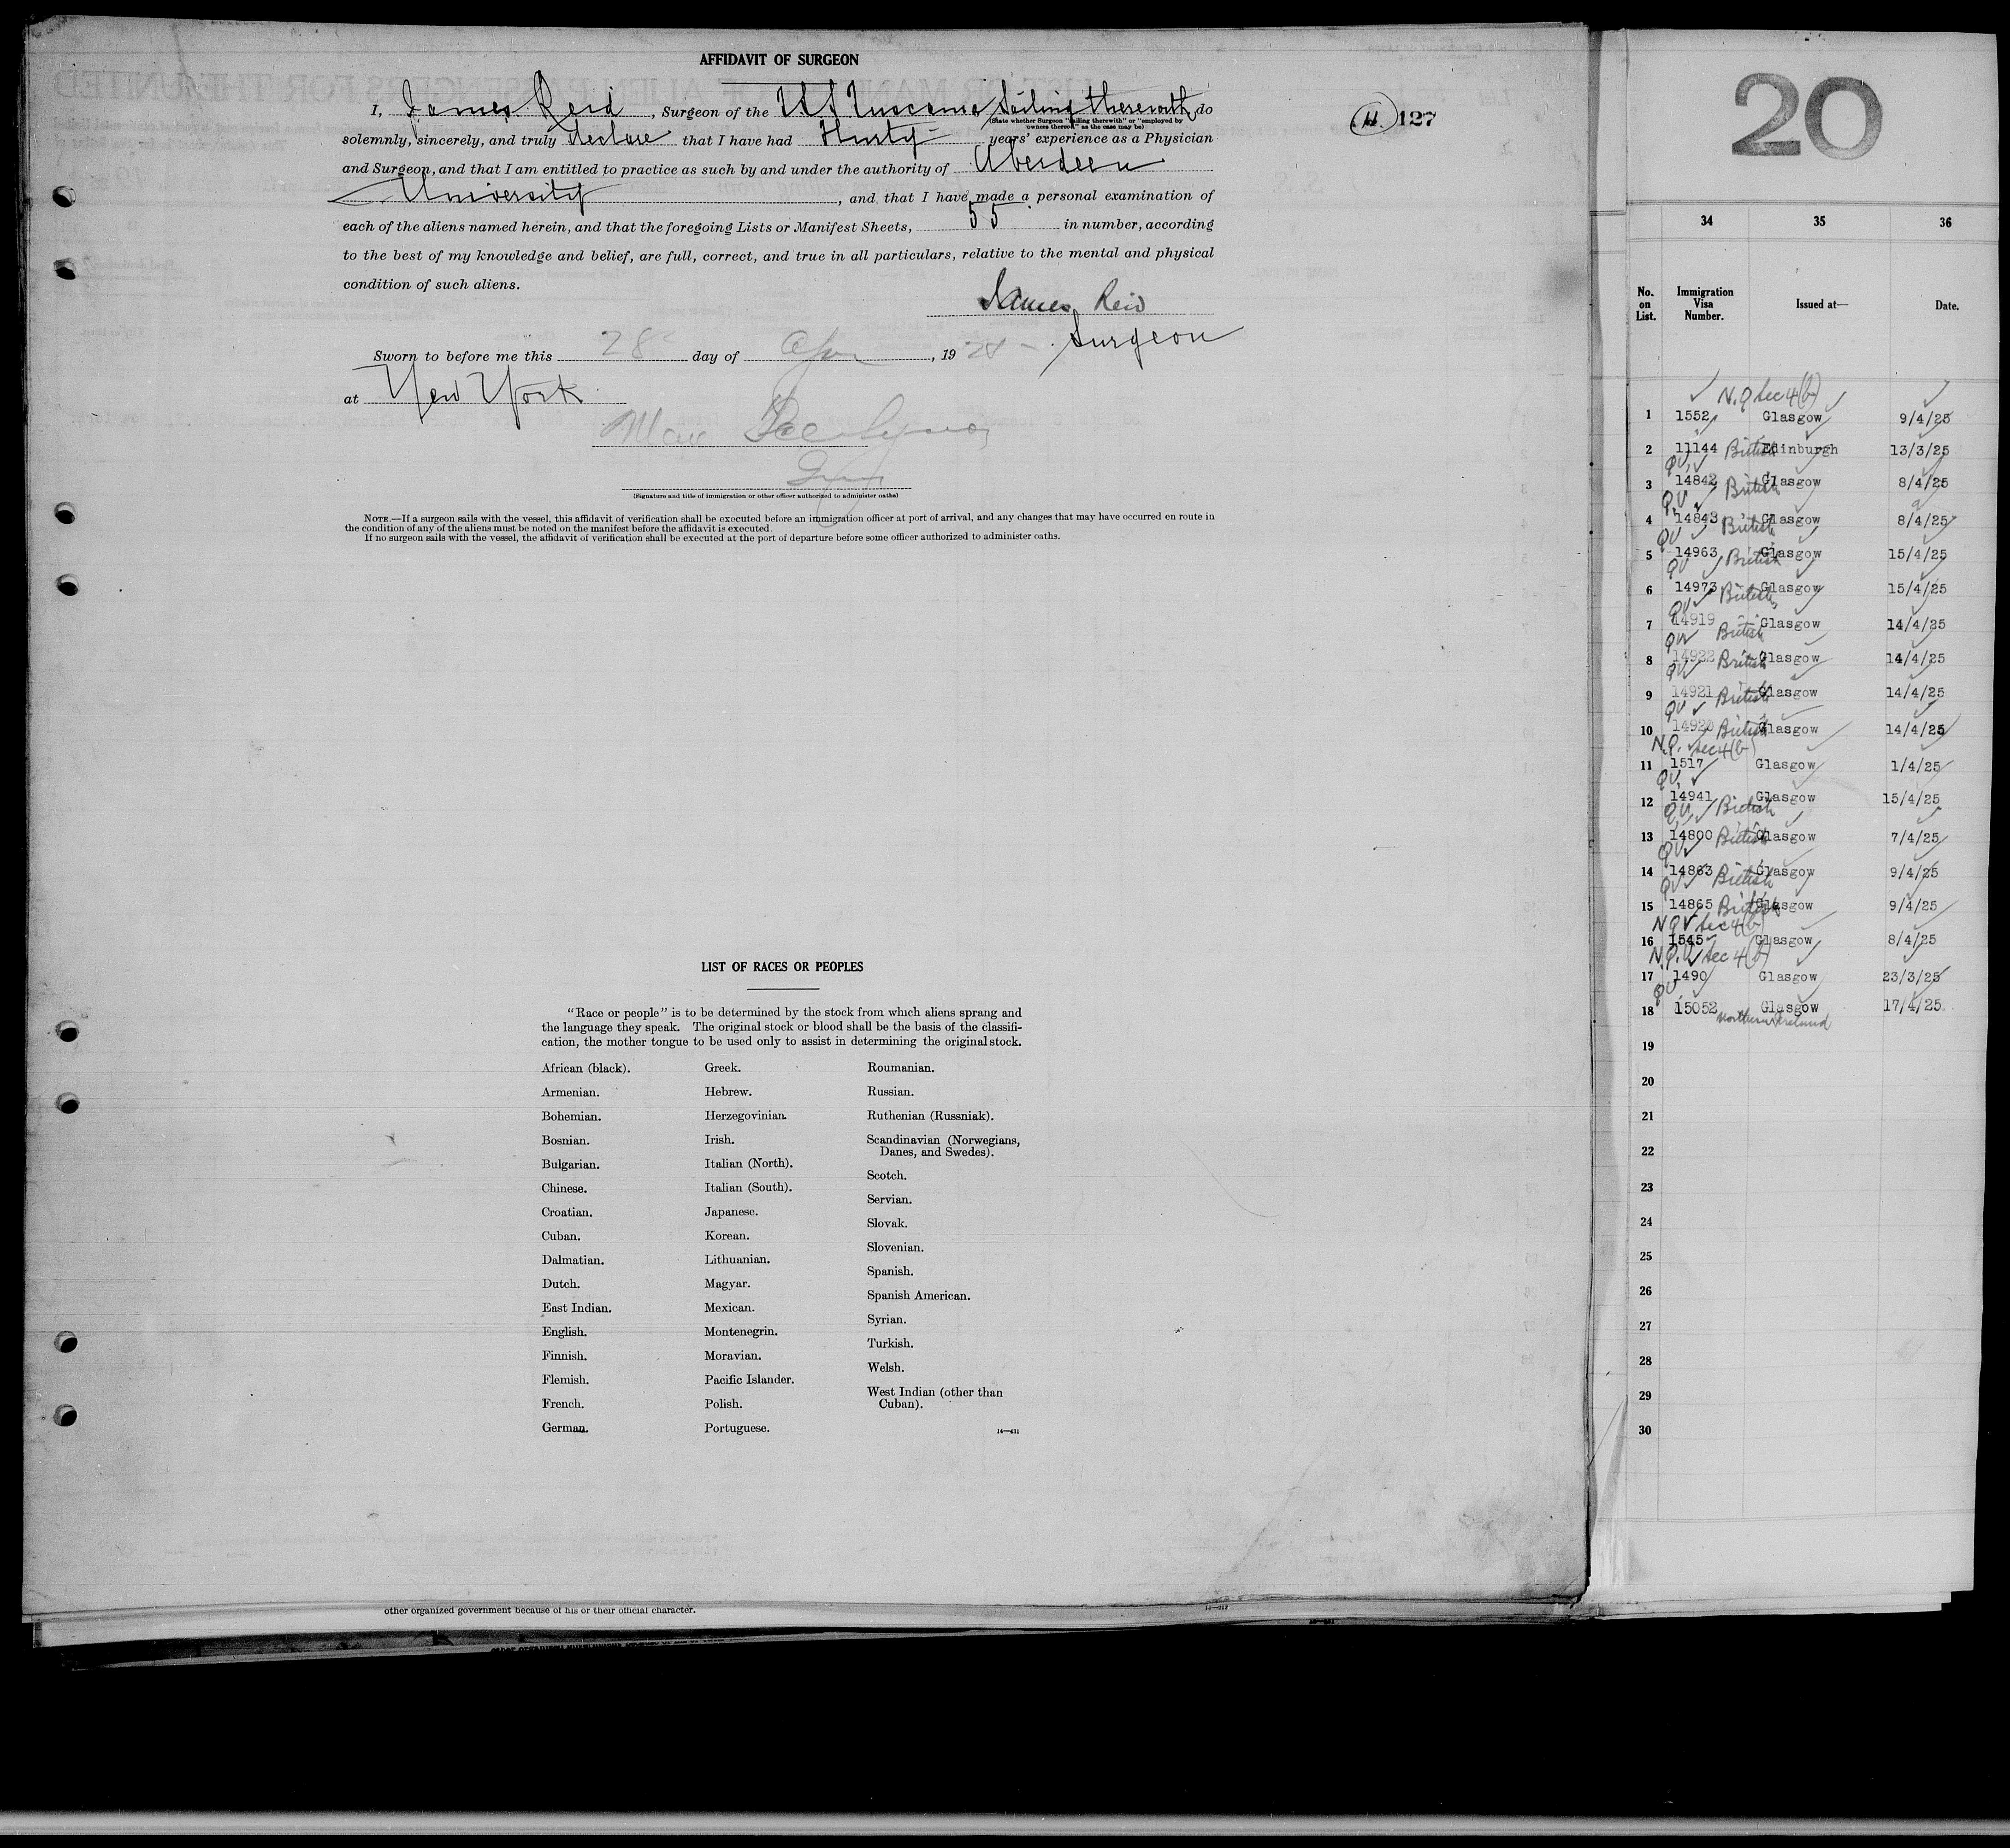 AFFIDAVIT OF SURGEON
I, James Reid, Surgeon of the Tuscania Sailing therewith do
(State whether Surgeon "sailing therewith" or "employed by
owners thereof" as the case may be)
solemnly, sincerely, and truly declare that I have had Thirty years' experience as a Physician
and Surgeon, and that I am entitled to practice as such by and under the authority of Aberdeen
University, and that I have made a personal examination of
each of the aliens named herein, and that the foregoing Lists or Manifest Sheets, 55 in number, according
to the best of my knowledge and belief, are full, correct, and true in all particulars, relative to the mental and physical
condition of such aliens.
James Reid
Surgeon
Sworn to before me this 28 day of Apr, 19
at New York
(Signature and title of immigration or other officer authorized to administer oaths)
NOTE.—If a surgeon sails with the vessel, this affidavit of verification shall be executed before an immigration officer at port of arrival, and any changes that may have occurred en route in
the condition of any of the aliens must be noted on the manifest before the affidavit is executed.
If no surgeon sails with the vessel, the affidavit of verification shall be executed at the port of departure before some officer authorized to administer oaths.
127
LIST OF RACES OR PEOPLES
"Race or people" is to be determined by the stock from which aliens sprang and
the language they speak. The original stock or blood shall be the basis of the classifi-
cation, the mother tongue to be used only to assist in determining the original stock.
African (black).
Armenian.
Bohemian.
Bosnian.
Bulgarian.
Chinese.
Croatian.
Cuban.
Dalmatian.
Dutch.
East Indian.
English.
Finnish.
Flemish.
French.
German.
Greek.
Hebrew.
Herzegovinian.
Irish.
Italian (North).
Italian (South).
Japanese.
Korean.
Lithuanian.
Magyar.
Mexican.
Montenegrin.
Moravian.
Pacific Islander.
Polish.
Portuguese.
Roumanian.
Russian.
Ruthenian (Russniak).
Scandinavian (Norwegians,
Danes, and Swedes).
Scotch.
Servian.
Slovak.
Slovenian.
Spanish.
Spanish American.
Syrian.
Turkish.
Welsh.
West Indian (other than
Cuban).
14—431
other organized government because of his or their official character.
20
34 35 36
No. on List. Immigration Visa Number. Issued at— Date.
N.Q sec 4(b)
1 1552 Glasgow 9/4/25
2 11144 British Edinburgh 13/3/25
QV
3 14842 British Glasgow 8/4/25
QV
4 14843 British Glasgow 8/4/25
QV
5 14963 British Glasgow 15/4/25
QV
6 14973 British Glasgow 15/4/25
QV
7 14919 British Glasgow 14/4/25
QV
8 14922 British Glasgow 14/4/25
QV
9 14921 British Glasgow 14/4/25
QV
10 14920 British Glasgow 14/4/25
N.Q. sec 4(b)
11 1517 Glasgow 1/4/25
QV
12 14941 British Glasgow 15/4/25
QV
13 14800 British Glasgow 7/4/25
QV
14 14863 British Glasgow 9/4/25
QV
15 14865 British Glasgow 9/4/25
NQV sec 4(b)
16 1545 Glasgow 8/4/25
N.Q.V sec 4(b)
17 1490 Glasgow 23/3/25
QV
18 15052 Glasgow 17/4/25
Northern Ireland
19
20
21
22
23
24
25
26
27
28
29
30